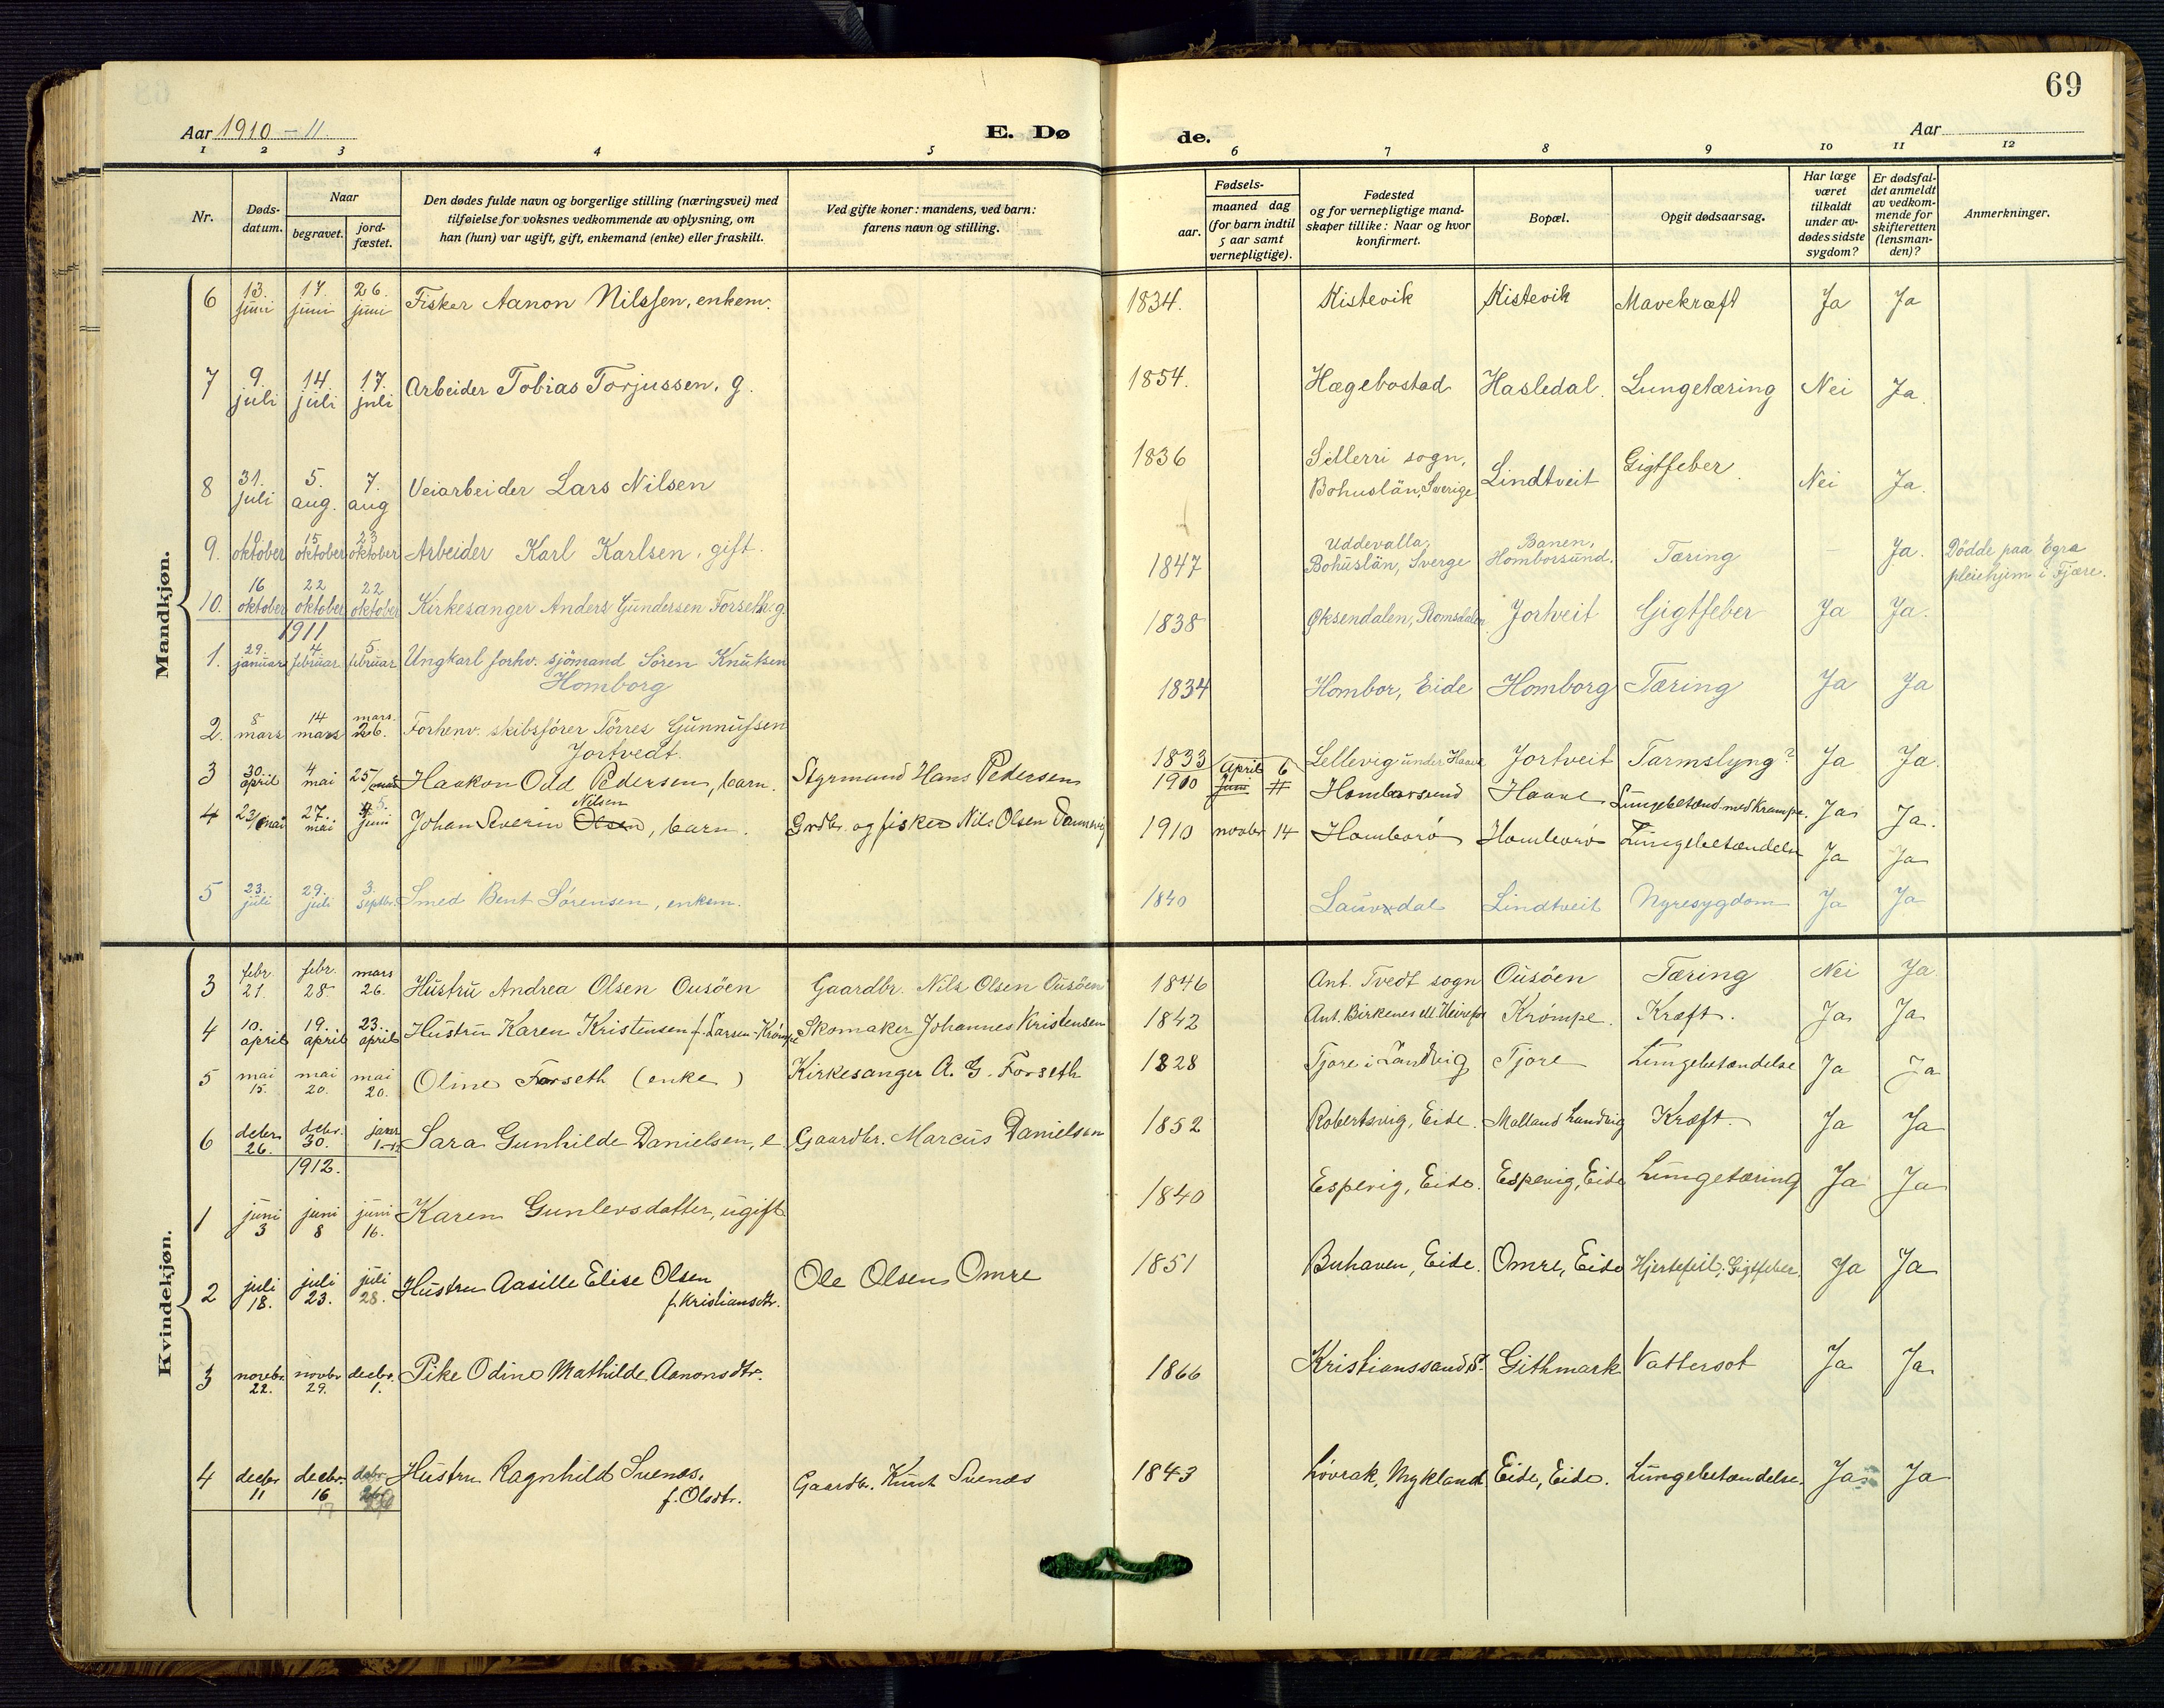 69
Aar 1910 - 11.
E. Dø
de.
Aar
1 2 3 4 5 6 7 8 9 10 11 12
Nr.
Døds-
datum.
Naar
begravet.
jord-
fæstet.
Den dødes fulde navn og borgerlige stilling (næringsvei) med
tilføielse for voksnes vedkommende av oplysning, om
han (hun) var ugift, gift, enkemand (enke) eller fraskilt.
Ved gifte koner: mandens, ved barn:
farens navn og stilling.
Fødsels-
aar.
maaned dag
(for barn indtil
5 aar samt
vernepligtige).
Fødested
og for vernepligtige mand-
skaper tillike: Naar og hvor
konfirmert.
Bopæl.
Opgit dødsaarsag.
Har læge
været
tilkaldt
under av-
dødes sidste
sygdom?
Er dødsfal-
det anmeldt
av vedkom-
mende for
skifteretten
(lensman-
den)?
Anmerkninger.
Mandkjøn.
6 13. juni 17. juni 26. juni Fisker Aanon Nilssen, enkem. 1834. Kistevik Kistevik Mavekræft Ja Ja
7 9. juli 14. juli 17. juli Arbeider Tobias Torjussen, g. 1854. Hægebostad Hasledal. Lungetæring Nei Ja.
8 31. juli 5. aug. 7. aug Veiarbeider Lars Nilsen 1836 sogn,
Bohuslän, Sverige Lindtveit Gigtfeber. Nei Ja.
9. oktober 15 oktober 23 oktober Arbeider Karl Karlsen, gift. 1847 Uddevalla,
Bohuslän, Sverge Banen,
Homborsund. Tæring – Ja. Dödde paa Egra
pleiehjem i Fjære.
10. 16 oktober 22 oktober 22 oktober Kirkesanger Anders Gundersen Forseth. g. 1838 Øksendalen, Romsdalen Jortveit Gigtfeber Ja Ja.
1911
1. 29. januar 4. februar 5. februar Ungkarl forhv. sjömand Sören Knutsen
Homborg 1834 Hombor, Eide Homborg Tæring Ja Ja
2. 8 mars 14 mars mars. 26. Forhenv. skibsförer Törres Gunnufsen
Jortvedt. 1833 Lellevig under Haave Jortveit Tarmslyng? Ja Ja.
3 30 april 4 mai 25/mai Haakon Odd Pedersen, barn. Styrmand Hans Pedersen 1910 April 6 Homborsund Haave Lungebetænd. med Krampe. Ja Ja.
4 23/mai 27. mai 5. juni Johan Severin Olsen Nilsen, barn. Grdbr. og fisker Nils Olsen 1910 novbr 14 Homborö Homborö Lungebetændelse Ja Ja
5 23. juli 29. juli 3. septbr. Smed Bent Sörensen, enkem. 1840 Lauvdal Lindtveit Nyresygdom Ja Ja
Kvindekjøn.
3 febr 21. febr. 28. mars 26. Hustru Andrea Olsen Ousöen Gaardbr. Nils Olsen Ousöen 1846 Ant. Tvedt sogn Ousöen Tæring Nei Ja
4 10. april 19. april 23. april Hustru Karen Kristensen f. Larsen-Krömpe Skomaker Johannes Kristensen 1842 Ant. Birkenes ell. Krömpe. Kræft. Ja Ja
5 mai 15. mai 20. mai 20. Oline Forseth (enke) Kirkesanger A. G. Forseth 1828 Tjore i Landvig Tjore Lungebetændelse Ja Ja
6 decbr. 26. decbr. 30. Sara Gunhilde Danielsen, e Gaardbr. Marcus Danielsen 1852 Robertsvig, Eide. Malland Landvig Kræft. Ja Ja
1912.
1 juni 3 juni 8 juni 16. Karen Gunlersdatter, ugift 1840 Espevig, Eide. Espevig, Eide Lungetæring Ja Ja
2 juli 18. juli 23. juli 28. Hustru Aasille Elise Olsen
f. Kristiansdtr. Ole Olsen Omre 1851 Buhaven, Eide. Omre, Eide Hjertefeil, Gigtfeber. Ja Ja
3 novbr. 22. novbr 29. decbr. 1. Pike Odine Mathilde Aanonsdtr. 1866 Kristianssand S. Githmark Vattersot Ja Ja.
4 decbr 11 decbr. 16 Hustru Ragnhild Svenos.
f. Olsdtr. Gaardbr. Knut Svenos 1843 Lövrak, Mykland Eide, Eide. Lungebetændelse. Ja Ja